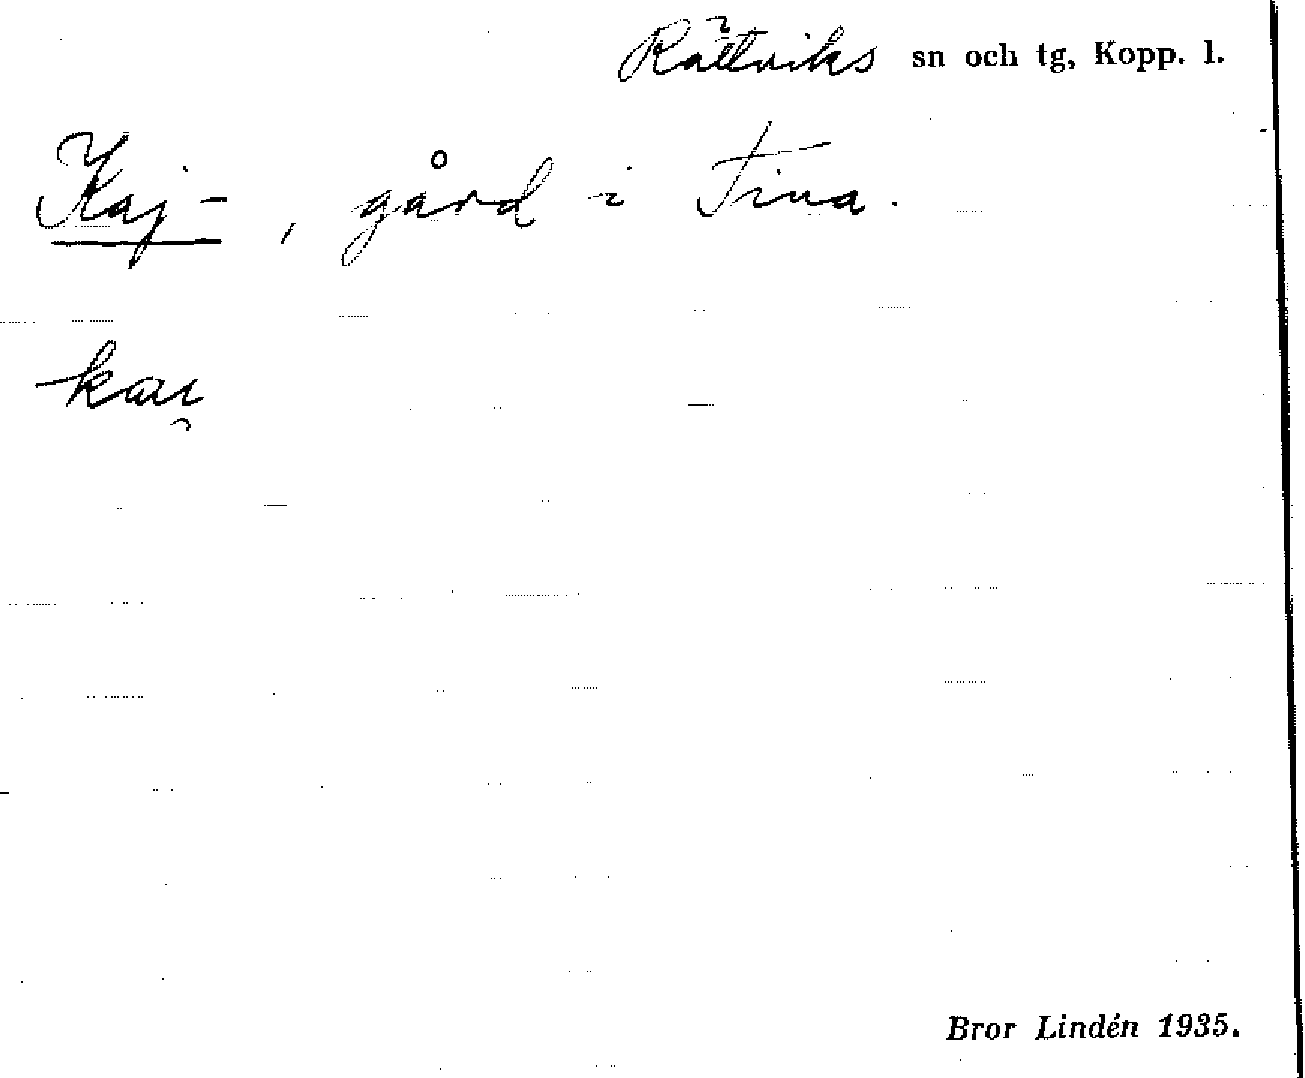 Rättviks sn och tg, Kopp. l.
Kaj-, gård i Tina.
kaı̯
Bror Lindén 1935.